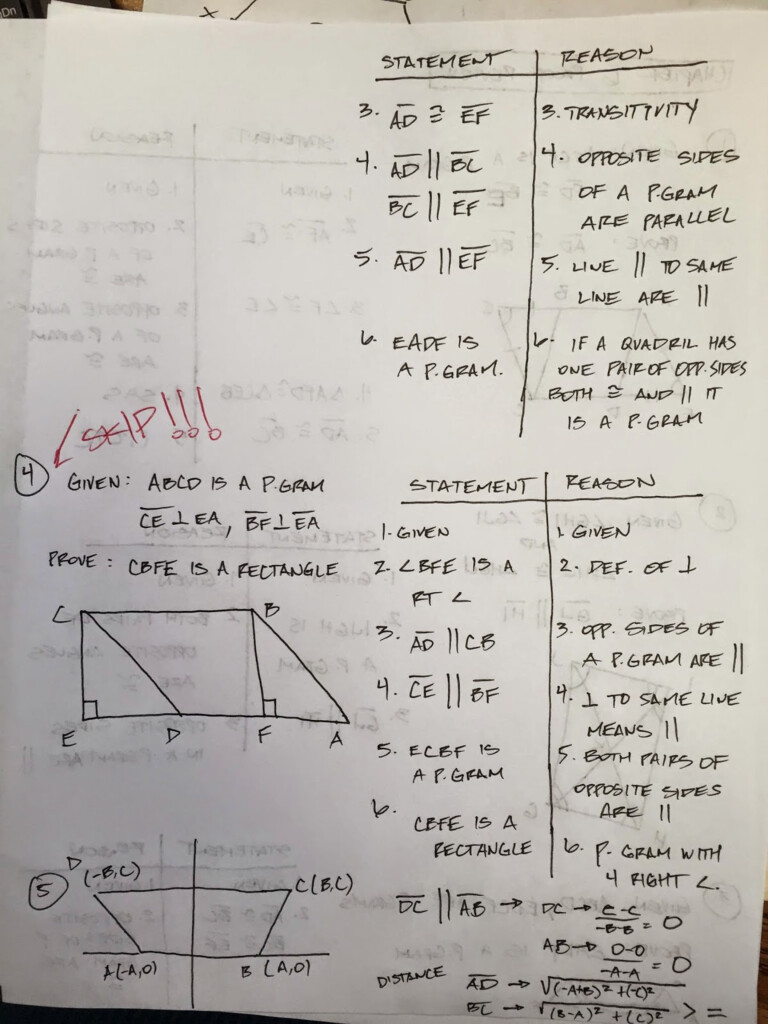 STATEMENT REASON
3. AD ≅ EF 3. TRANSITIVITY
4. AD || BC 4. OPPOSITE SIDES
BC || EF OF A P.GRAM
ARE PARALLEL
5. AD || EF 5. LINE || TO SAME
LINE ARE ||
6. EADF IS 6. IF A QUADRIL HAS
A P.GRAM. ONE PAIR OF OPP. SIDES
BOTH ≅ AND || IT
IS A P.GRAM
SKIP!!!
4 GIVEN: ABCD IS A P.GRAM
CE ⊥ EA, BF ⊥ EA
PROVE: CBFE IS A RECTANGLE
C B
E D F A
STATEMENT REASON
1. GIVEN 1. GIVEN
2. ∠BFE IS A 2. DEF. OF ⊥
RT ∠
3. AD || CB 3. OPP. SIDES OF
A P.GRAM ARE ||
4. CE || BF 4. ⊥ TO SAME LINE
MEANS ||
5. ECBF IS 5. BOTH PAIRS OF
A P.GRAM OPPOSITE SIDES
ARE ||
6. CBFE IS A
RECTANGLE 6. P-GRAM WITH
4 RIGHT ∠.
5 D
(-B,C) C(B,C)
A(-A,0) B (A,0)
DC || AB → DC → C-C/-B-B = 0
AB → 0-0/-A-A = 0
DISTANCE AD → √(-A+B)² + (-C)²
BC → √(B-A)² + (C)² > =